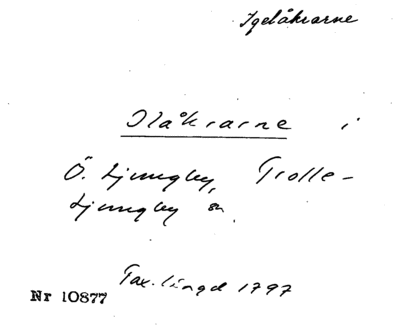 Igelåkrarne
Ilåkrarne i
Ö. Ljungby, Trolle-
Ljungby sn.
Tax.längd 1797
Nr 10877